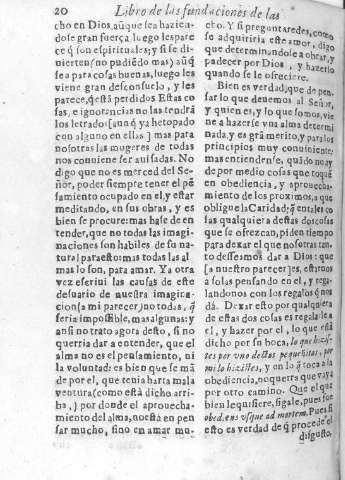 20 Libro de las fundaciones de las
cho en Dios, aũque sea hazien-
dose gran fuerça, luego les pare
ce q̃ son espirituales; y si se di-
uierten (no pudiẽdo mas) aũq̃
sea para cosas buenas, luego les
viene gran desconsuelo, y les
parece, q̃ està perdidos Estas co
sas, e ignorancias no las tendrà
los letrados (aunq̃ ya he topado
con alguno en ellas) mas para
nosotras las mugeres de todas
nos conuiene ser auisadas. No
digo que no es merced del Se-
ñor, poder siempre tener el pẽ
samiento ocupado en el, y estar
meditando, en sus obras, y es
bien se procure: mas hase de en
tender, que no todas las imagi
naciones son habiles de su na-
tural para esto: mas todas las al
mas lo son, para amar. Ya otra
vez escriui las causas de este
desuario de nuestra imagina-
cion (a mi parecer) no todas, q̃
seria impossible, mas algunas: y
ansi no trato agora desto, si no
querria dar a entender, que el
alma no es el pensamiento, ni
la voluntad: es bien que se mã
de por el, que tenia harta mala
ventura (como està dicho arri-
ba,) por donde el aprouecha-
miento del alma, no està en pen
sar mucho, sino en amar mu-
cto. Y si preguntaredes, como
se adquiriria este amor, digo
que determinandose a obrar, y
padecer por Dios, y hazerlo
quando se le ofreciere.
Bien es verdad, que de pen-
sar lo que deuemos al Señor,
y quien es, y lo que somos, vie
ne a hazerse vna alma determi
nada, y es grã merito, y para los
principios muy conuiniente:
mas entiendense, quãdo no ay
de por medio cosas que toquẽ
en obediencia, y aprouecha-
miento de los proximos, a que
obligue la Caridad; q̃ entales co
sas qualquiera destas dos cosas
que se ofrezcan, piden tiempo
para dexar el que nosotras tan-
to desseamos dar a Dios: que
(a nuestro parecer) es, estarnos
a solas pensando en el, y rega-
landonos con los regalos q̃ nos
dà. Dexar esto por qualquiera
de estas dos cosas es regalarle a
el, y hazer por el, lo que està
dicho por su boca, lo que hizis-
tes por vno destos pequeñitos, por
mi lo hizistes, y en lo q̃ toca a la
obediencia, no querra que vaya
por otro camino. Que el que
bien le quisiere, sigale, pues fue
obediens vsque ad mortem. Pues si
esto es verdad de q̃ procede el
disgusto,